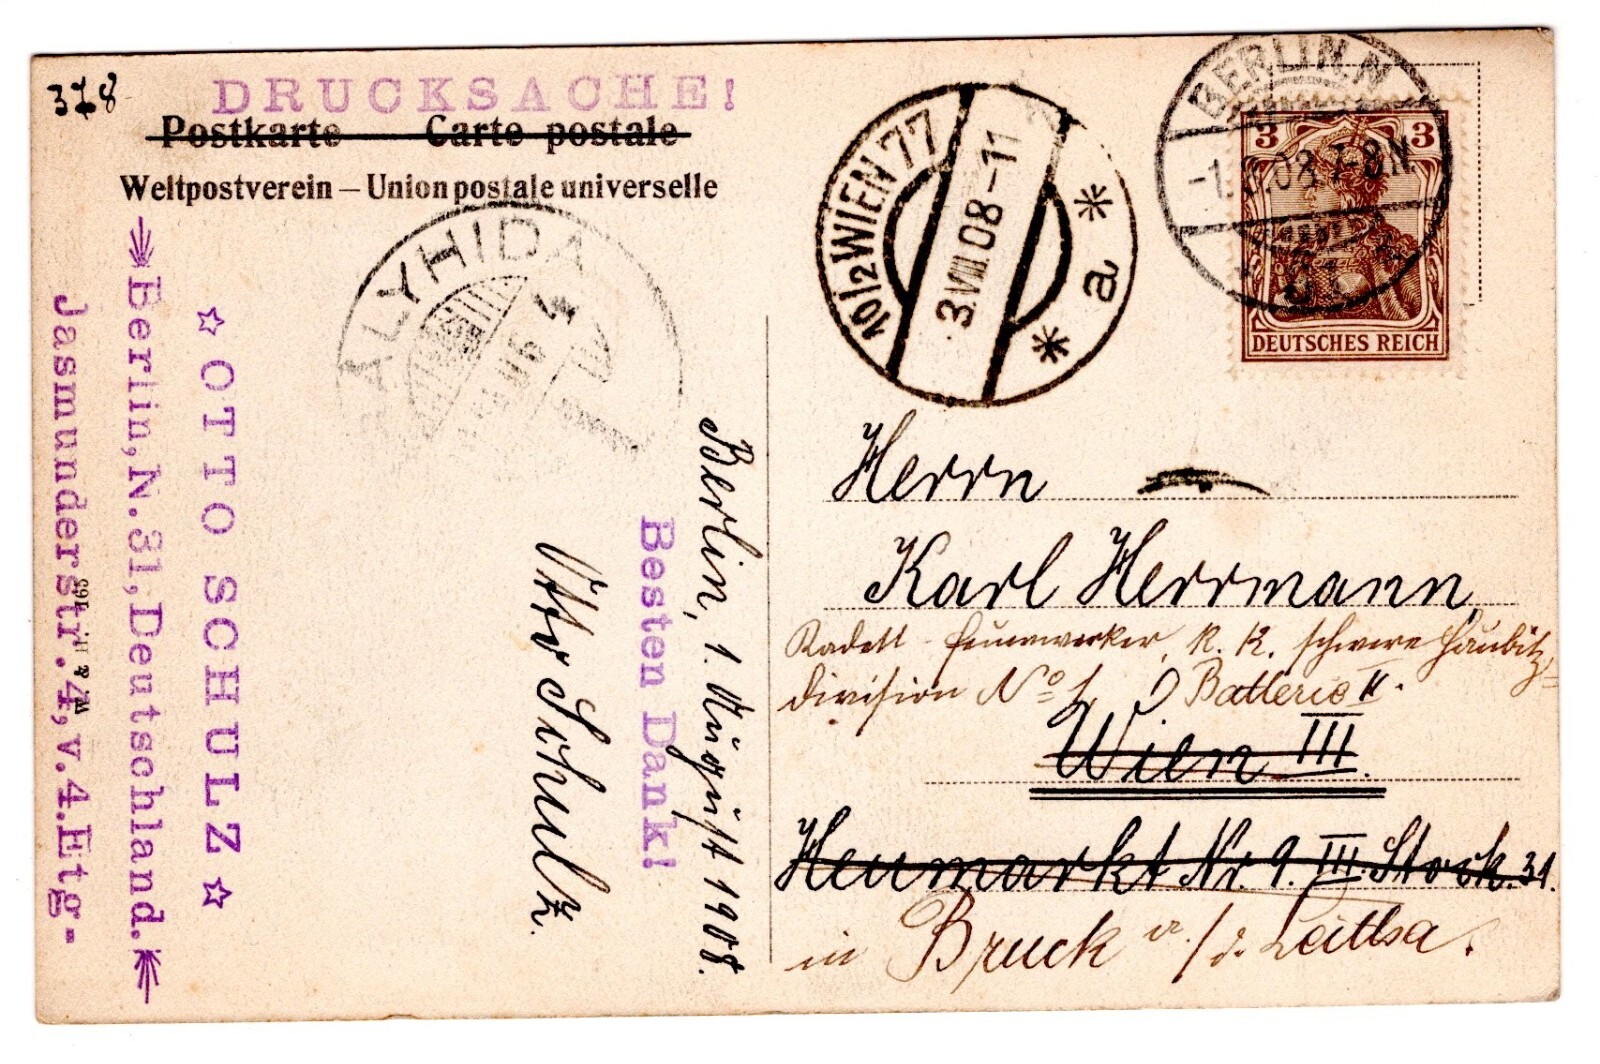 378
DRUCKSACHE!
Postkarte Carte postale
Weltpostverein – Union postale universelle
☆ OTTO SCHULZ ☆
Berlin, N. 31, Deutschland.
Jasmunderstr. 4, v. 4. Etg.
KIRÁLYHIDA
10/2 WIEN 77
3.VIII.08–11
* a *
BERLIN.N
-1.8.08.7-8N.
3 3
DEUTSCHES REICH
Besten Dank!
Berlin, 1. August 1908.
Otto Schulz.
Herrn
Karl Herrmann,
Kadett-Feuerwerker, K. K. schwere Haubitz-
division No 1, Batterie II.
Wien III.
Heumarkt Nr. 9. III. Stock. 31.
in Bruck a./d. Leitha.